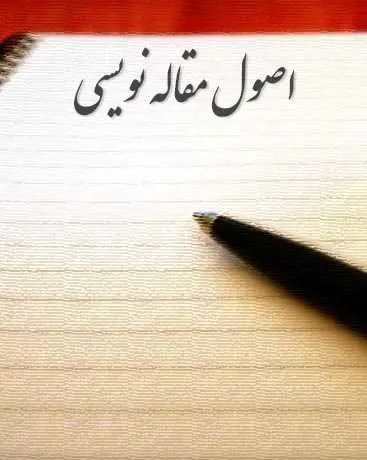 اصول مقاله نویسی